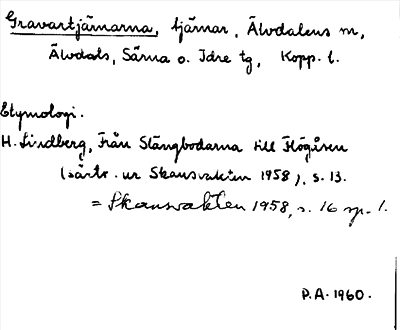 Gravartjärnarna, tjärnar, Älvdalens m,
Älvdals, Särna o. Idre tg, Kopp. l.
Etymologi.
H. Lindberg, Från Stängbodarna till Högåsen
(särtr. ur Skansvakten 1958), s. 13.
= Skansvakten 1958, s. 16 sp. 1.
P.A. 1960.